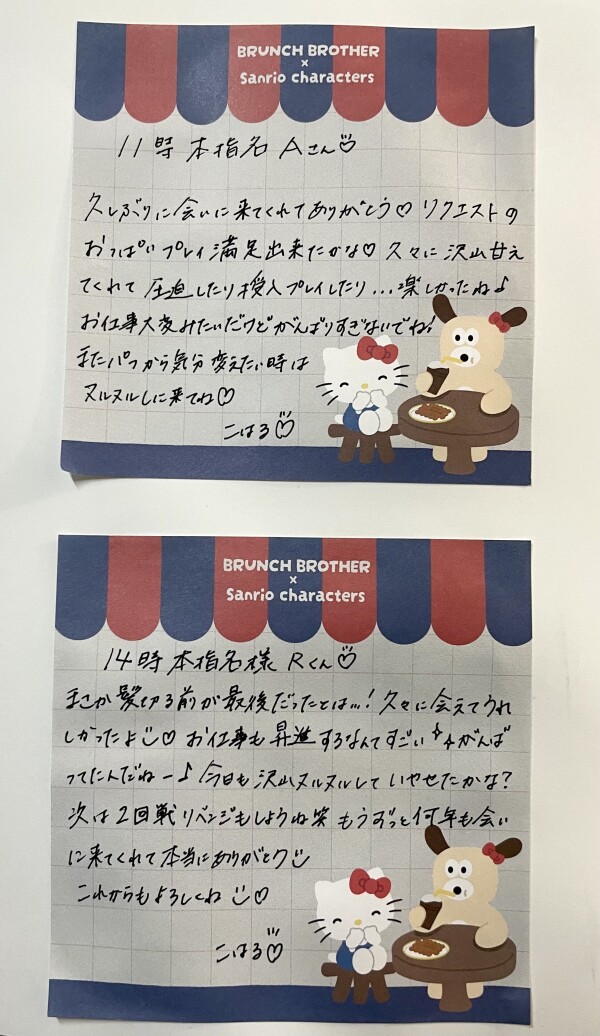 BRUNCH BROTHER
×
Sanrio characters
11時 本指名 Aさん♡
久しぶりに会いに来てくれてありがとう♡ リクエストの
おっぱいプレイ満足出来たかな♡ 久々に沢山甘え
てくれて 圧迫したり授入プレイしたり...楽しかったね♪
お仕事大変みたいだけどがんばりすぎないでね!
またパフから気分変えたい時は
ヌルヌルしに来てね♡
こはる♡
BRUNCH BROTHER
×
Sanrio characters
14時 本指名様 Rくん♡
まさか髪切る前が最後だったとは...! 久々に会えてうれ
しかったよ♡ お仕事も昇進するなんてすごい がんば
ってたんだねー♪ 今日も沢山ヌルヌルして いやせたかな?
次は2回戦リベンジもしようね笑 もうずっと何年も会い
に来てくれて本当にありがとう
これからもよろしくね ♡
こはる♡